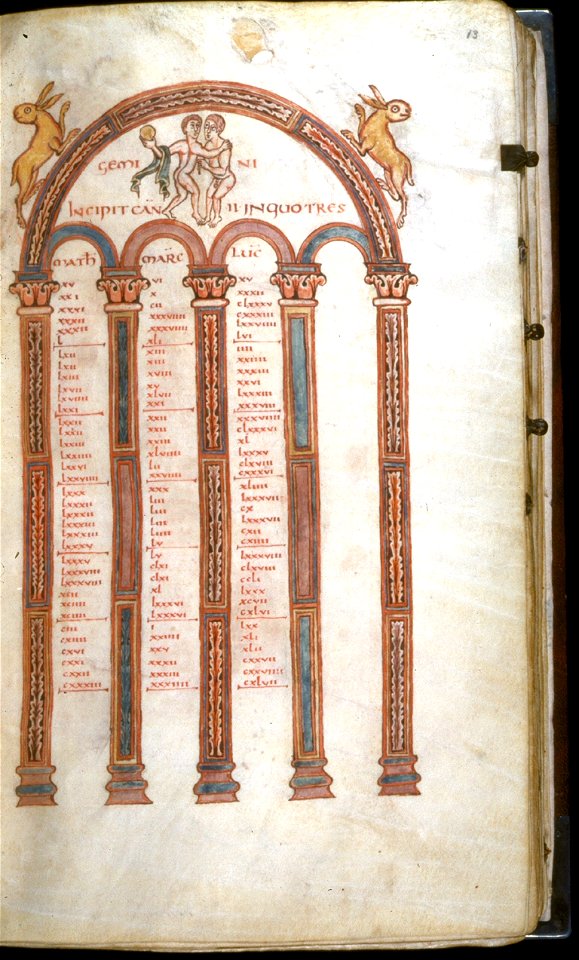 13
GEMI NI
INCIPIT CAN II IN QUO TRES
MATH
MARC
LUC
xv
xxi
xxxi
xxxii
xxxii
l
lxii
lxii
lxiii
lxvii
lxviiii
lxxi
lxxii
lxxii
lxxiii
lxxiiii
lxxvi
lxxviiii
lxxx
lxxxii
lxxxii
lxxxiii
lxxxiii
lxxxv
lxxxv
lxxxviii
lxxxviii
xcii
xciiii
xciiii
ciii
cxiiii
cxvi
cxxi
cxxii
cxxxiii
vi
x
cii
xxxviiii
xxxviiii
xli
xiii
xiii
xviii
xv
xlvii
xxi
xxii
xxii
xxiii
xlviiii
lii
xxviiii
xxx
liii
liii
liiii
liiii
lv
lv
clxi
clxi
xl
lxxxvi
lxxxvi
i
xxiiii
xxv
xxxii
xxxiii
xxxiiii
xv
xxxii
clxxxv
cxxxiii
lxxviiii
lvi
iiii
xxiiii
xxxiii
xxvi
lxxxiii
xxxviii
xxxviiii
clxxxvi
xl
lxxxv
clxviiii
cxxxvi
xliiii
lxxxvii
cx
lxxxvii
cxii
cxiiii
lxxxviii
clxviii
ccli
lxxx
xcvii
cxlvi
lxx
xli
xlii
cxxvii
cxxviiii
cxlvii